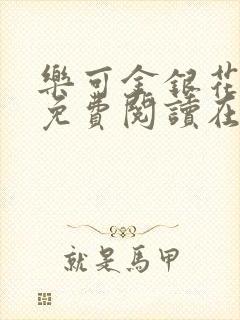 樂可金銀花
免費閱讀在
就是馬甲